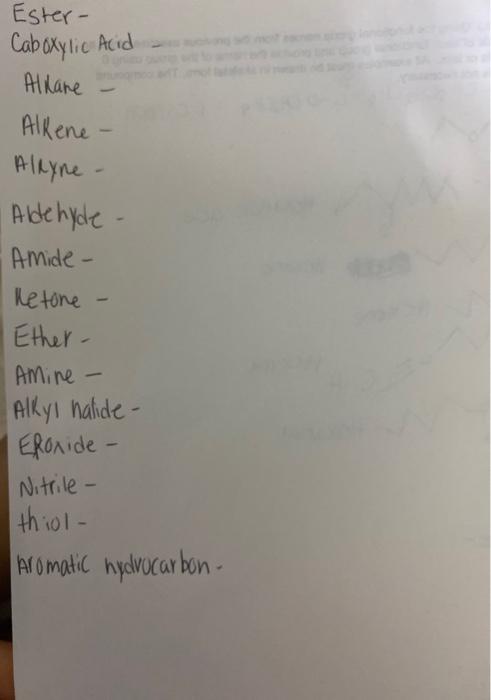 Ester -
Caboxylic Acid -
Alkane -
Alkene -
Alkyne -
Aldehyde -
Amide -
Ketone -
Ether -
Amine -
Alkyl halide -
EPoxide -
Nitrile -
thiol -
Aromatic hydrocarbon -